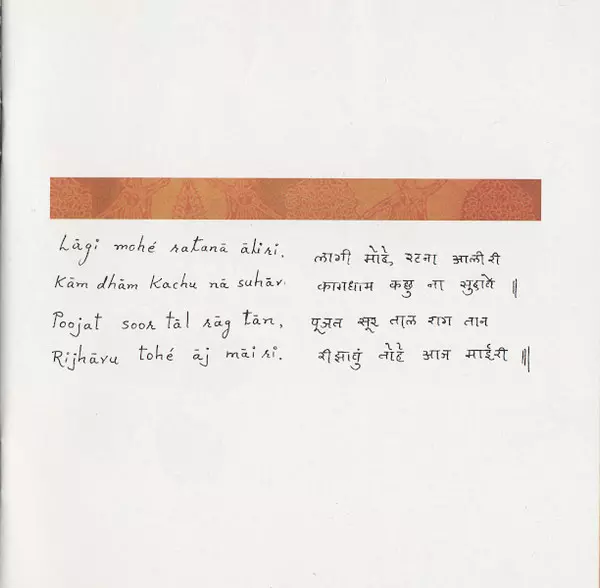 Lāgi mohé ratanā āliri. लागी मोहे, रटना आलीरी
Kām dhām Kachu nā suhāv. कामधाम कछु ना सुहावे ॥
Poojat soor tāl rāg tān, पूजत सूर ताल राग तान
Rijhāvu tohé āj māi ri. रीझावुं तोहे आज माईरी ॥